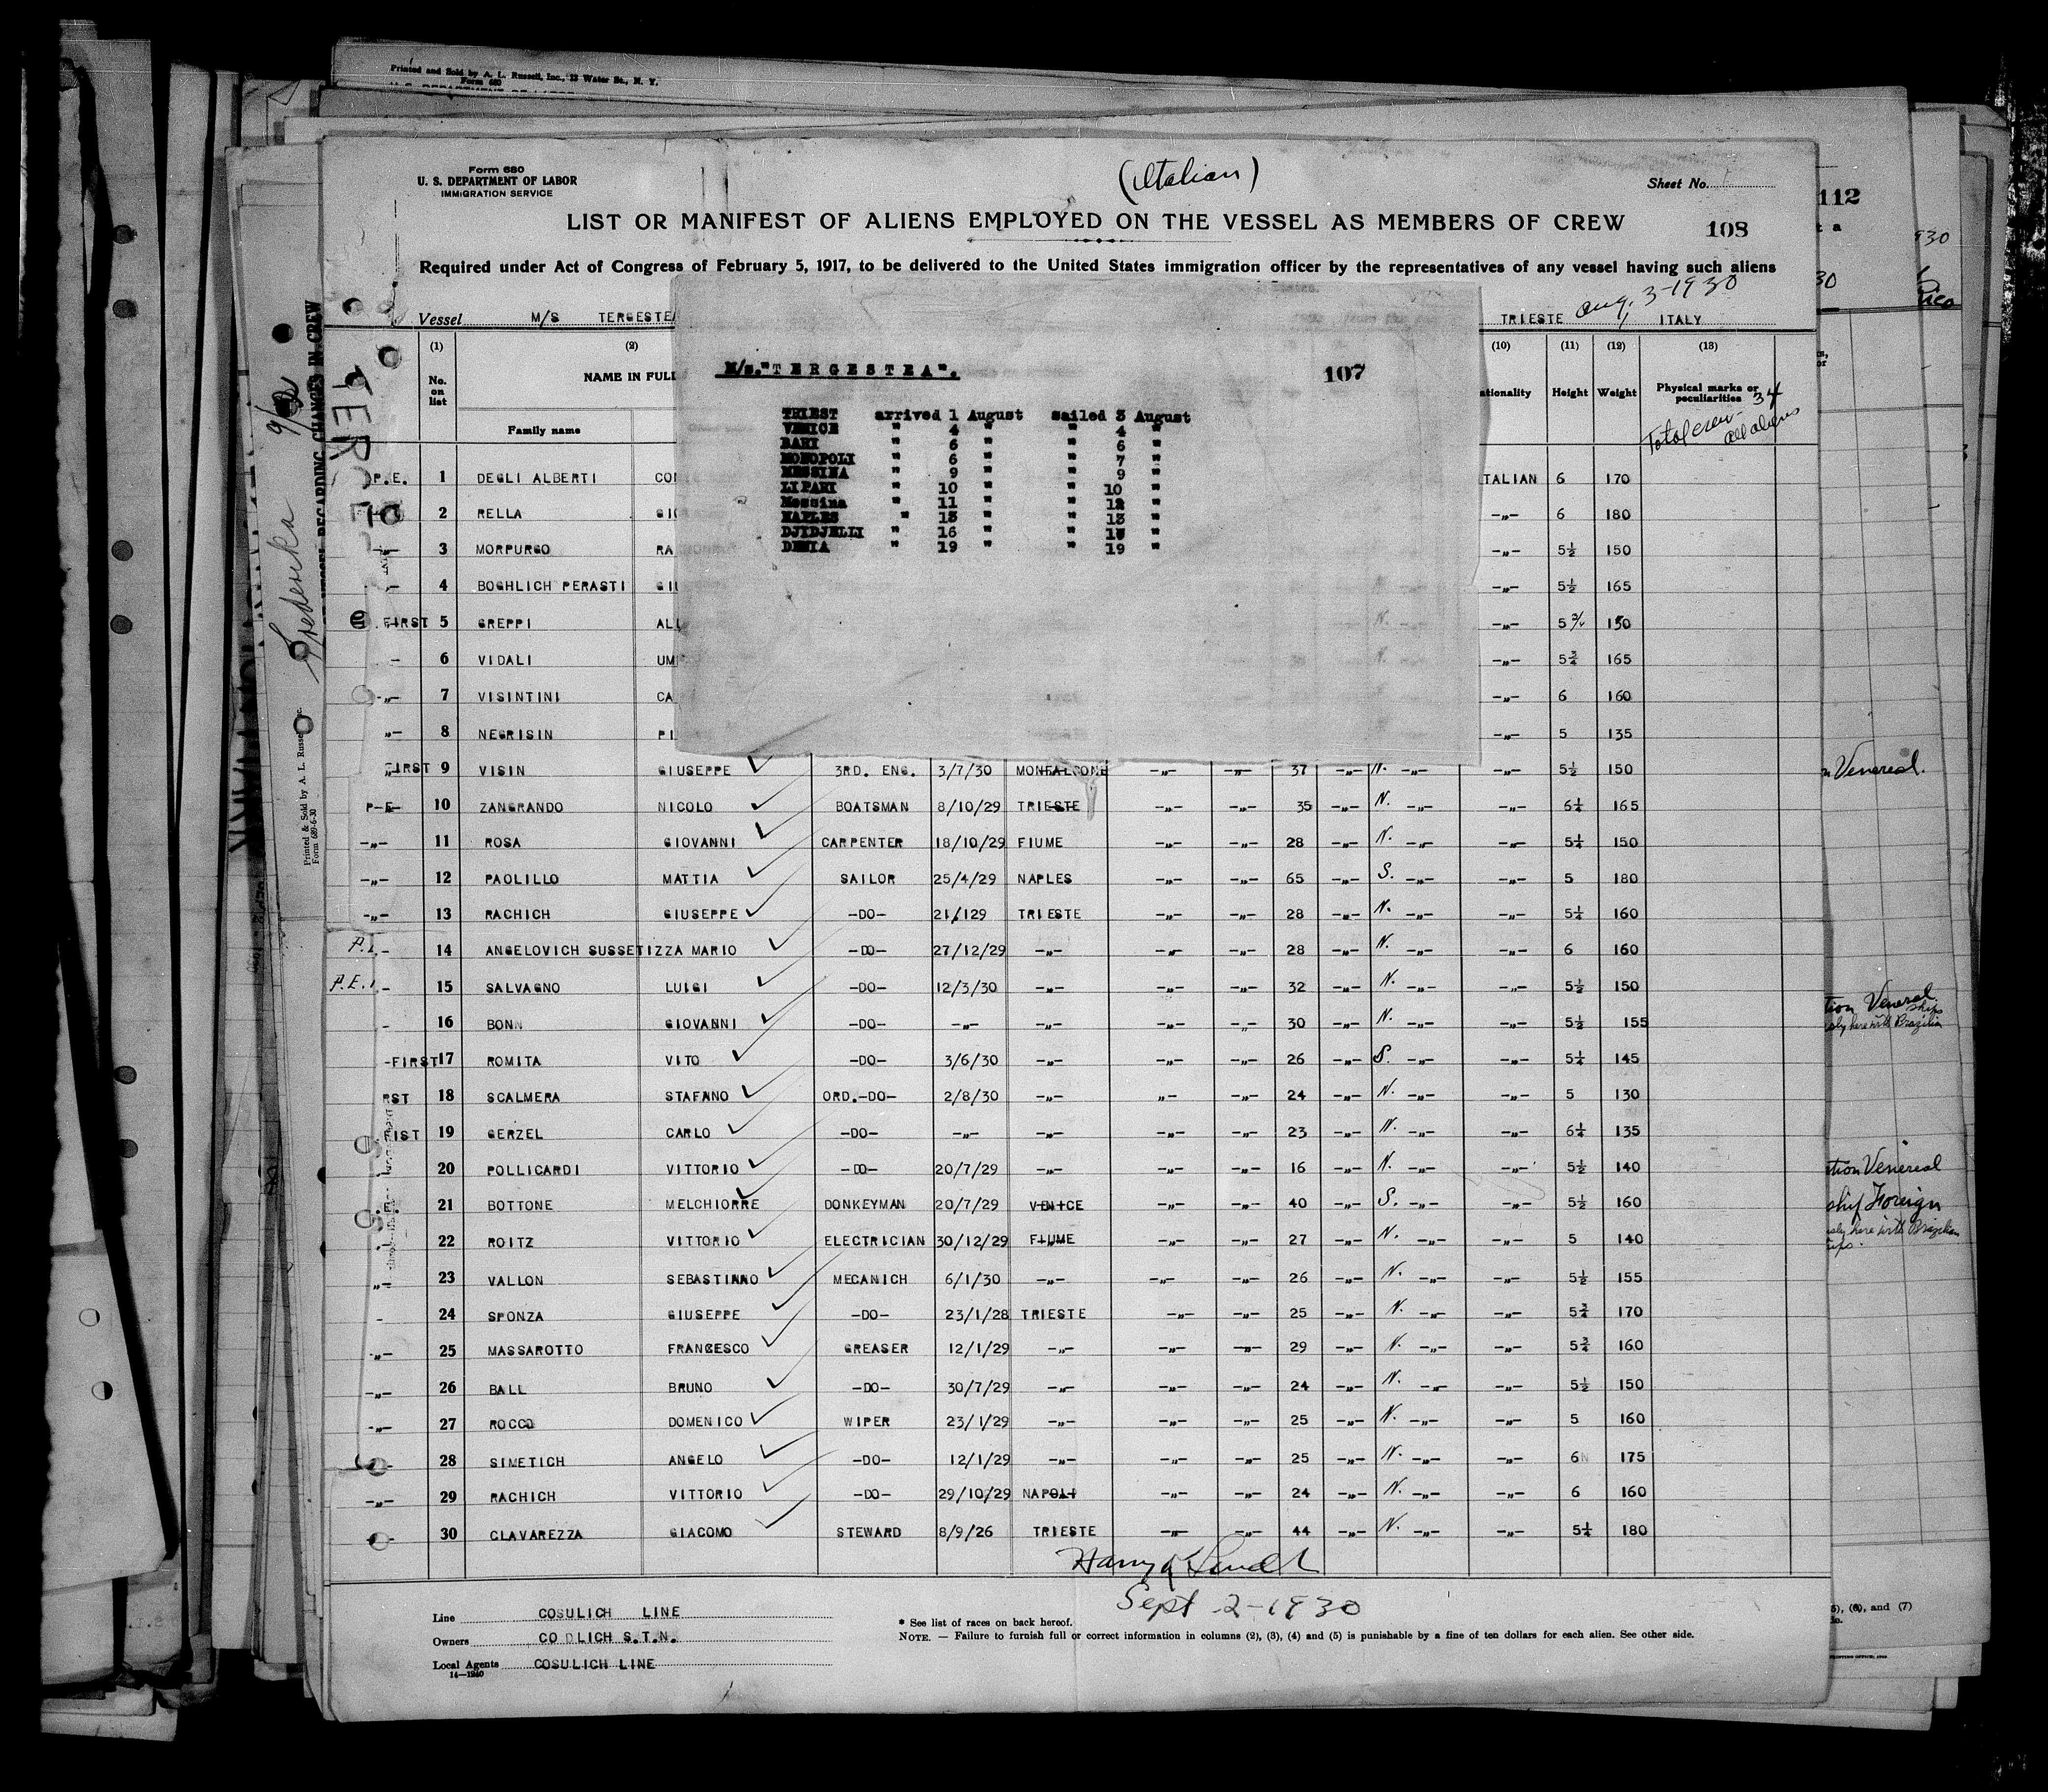 Printed and Sold by A. L. Russell, Inc., 23 Water St., N. Y.
Form 680
Form 680
U. S. DEPARTMENT OF LABOR
IMMIGRATION SERVICE
(Italian)
Sheet No.
112
LIST OR MANIFEST OF ALIENS EMPLOYED ON THE VESSEL AS MEMBERS OF CREW
108
Required under Act of Congress of February 5, 1917, to be delivered to the United States immigration officer by the representatives of any vessel having such aliens
Aug. 3-1930
Vessel M/S TERGESTEA TRIESTE, ITALY
M/s."TERGESTEA". 107
TRIEST arrived 1 August sailed 3 August
VENICE " 4 " " 4 "
BARI " 6 " " 6 "
MONOPOLI " 6 " " 7 "
MESSINA " 9 " " 9 "
LIPARI " 10 " " 10 "
Messina " 11 " " 12 "
NAPLES " 13 " " 13 "
DJYDJELLI " 16 " " 17 "
DENIA " 19 " " 19 "
(1) (2) (10) (11) (12) (13)
No. on list NAME IN FULL Height Weight Physical marks or peculiarities
Family name
Total crew 34
all aliens
P.E. 1 DEGLI ALBERTI TALIAN 6 170
2 RELLA -"- 6 180
-"- 3 MORPURGO RA -"- 5½ 150
- 4 BOGHLICH PERASTI -"- 5½ 165
FIRST 5 GREPPI AL N. -"- 5¾ 150
- 6 VIDALI UM N. -"- 5¾ 165
-"- 7 VISINTINI CA -"- 6 160
"- 8 NEGRISIN -"- 5 135
FIRST 9 VISIN GIUSEPPE ✓ 3RD. ENG. 3/7/30 MONFALCONE -"- -"- 37 -"- N. -"- -"- 5½ 150
P-E- 10 ZANGRANDO NICOLO ✓ BOATSMAN 8/10/29 TRIESTE -"- -"- 35 -"- N. -"- -"- 6¼ 165
-"- 11 ROSA GIOVANNI ✓ CARPENTER 18/10/29 FIUME -"- -"- 28 -"- N. -"- -"- 5¼ 150
-"- 12 PAOLILLO MATTIA ✓ SAILOR 25/4/29 NAPLES -"- -"- 65 -"- S. -"- -"- 5 180
-"- 13 RACHICH GIUSEPPE ✓ -DO- 21/129 TRIESTE -"- -"- 28 -"- N. -"- -"- 5¼ 160
P.E. - 14 ANGELOVICH SUSSETIZZA MARIO ✓ -DO- 27/12/29 -"- -"- -"- 28 -"- N. -"- -"- 6 160
P.E. - 15 SALVAGNO LUIGI ✓ -DO- 12/3/30 -"- -"- -"- 32 -"- N. -"- -"- 5½ 150
- 16 BONN GIOVANNI ✓ -DO- -"- -"- -"- -"- 30 -"- N. -"- -"- 5½ 155
-FIRST 17 ROMITA VITO ✓ -DO- 3/6/30 -"- -"- -"- 26 -"- S. -"- -"- 5¼ 145
RST 18 SCALMERA STAFANO ✓ ORD.-DO- 2/8/30 -"- "- -"- 24 -"- N. -"- -"- 5 130
IST 19 GERZEL CARLO ✓ -DO- -"- -"- -"- -"- 23 -"- N. -"- -"- 6¼ 135
20 POLLICARDI VITTORIO ✓ -DO- 20/7/29 -"- -"- -"- 16 -"- N. -"- -"- 5½ 140
.E. 21 BOTTONE MELCHIORRE ✓ DONKEYMAN 20/7/29 VENICE -"- -"- 40 -"- S. -"- -"- 5½ 160
- 22 ROITZ VITTORIO ✓ ELECTRICIAN 30/12/29 FIUME -"- -"- 27 -"- N. -"- -"- 5 140
"- 23 VALLON SEBASTIANO ✓ MECANICH 6/1/30 -"- -"- -"- 26 -"- N. -"- -"- 5½ 155
- 24 SPONZA GIUSEPPE ✓ -DO- 23/1/28 TRIESTE -"- -"- 25 -"- N. -"- -"- 5¾ 170
-"- 25 MASSAROTTO FRANCESCO ✓ GREASER 12/1/29 -"- -"- -"- 29 -"- N. -"- -"- 5¾ 160
-"- 26 BALL BRUNO ✓ -DO- 30/7/29 -"- -"- -"- 24 -"- N. -"- -"- 5½ 150
-"- 27 ROCCO DOMENICO ✓ WIPER 23/1/29 -"- -"- -"- 25 -"- N. -"- -"- 5 160
- 28 SIMETICH ANGELO ✓ -DO- 12/1/29 -"- -"- -"- 25 -"- N. -"- -"- 6 175
-"- 29 RACHICH VITTORIO ✓ -DO- 29/10/29 NAPOLI -"- -"- 24 -"- N. -"- -"- 6 160
- 30 CLAVAREZZA GIACOMO ✓ STEWARD 8/9/26 TRIESTE -"- -"- 44 -"- N. -"- -"- 5¼ 180
Sept 2-1930
Line COSULICH LINE
Owners CO LICH S.T.N.
Local Agents COSULICH LINE
14-1240
* See list of races on back hereof.
NOTE. — Failure to furnish full or correct information in columns (2), (3), (4) and (5) is punishable by a fine of ten dollars for each alien. See other side.
Frederika
9/2
REGARDING CHANGES IN CREW
Printed & Sold by A. L. Russe
Form 689-6-30
Venereal.
tion Venereal.
ships
sly here with Brazilian
tion Venereal
ship Foreign
sly here with Brazilian
(6), and (7)